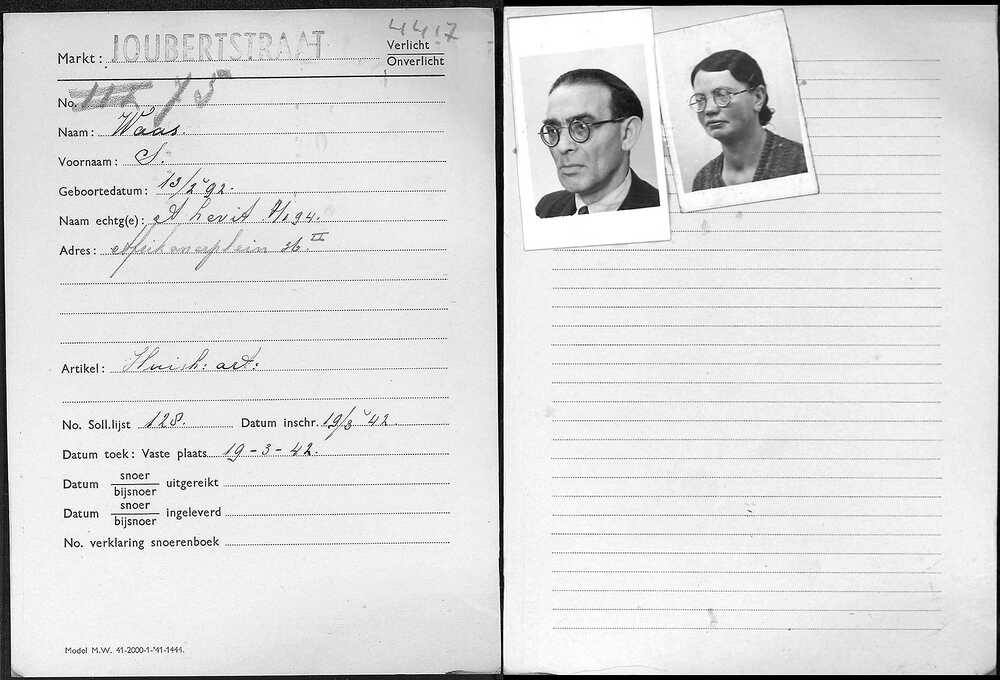 44.7
Markt: JOUBERTSTRAAT
Verlicht
Onverlicht
No. 75
Naam: Waas.
Voornaam: S.
Geboortedatum: 13/2 '92.
Naam echtg(e): Levit 94.
Adres: plein 36 II
Artikel: Huish: art:
No. Soll.lijst 128. Datum inschr. 19/3 '42.
Datum toek: Vaste plaats 19-3-42.
Datum snoer/bijsnoer uitgereikt
Datum snoer/bijsnoer ingeleverd
No. verklaring snoerenboek
Model M.W. 41-2000-1-'41-1444.